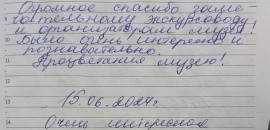 Огромное спасибо заме
чательному экскурсоводу
и организаторам музея!
10 Было очень интересно и
познавательно.
11 Процветания музею!
12
13 15.06.2024г.
14 Очень интересная